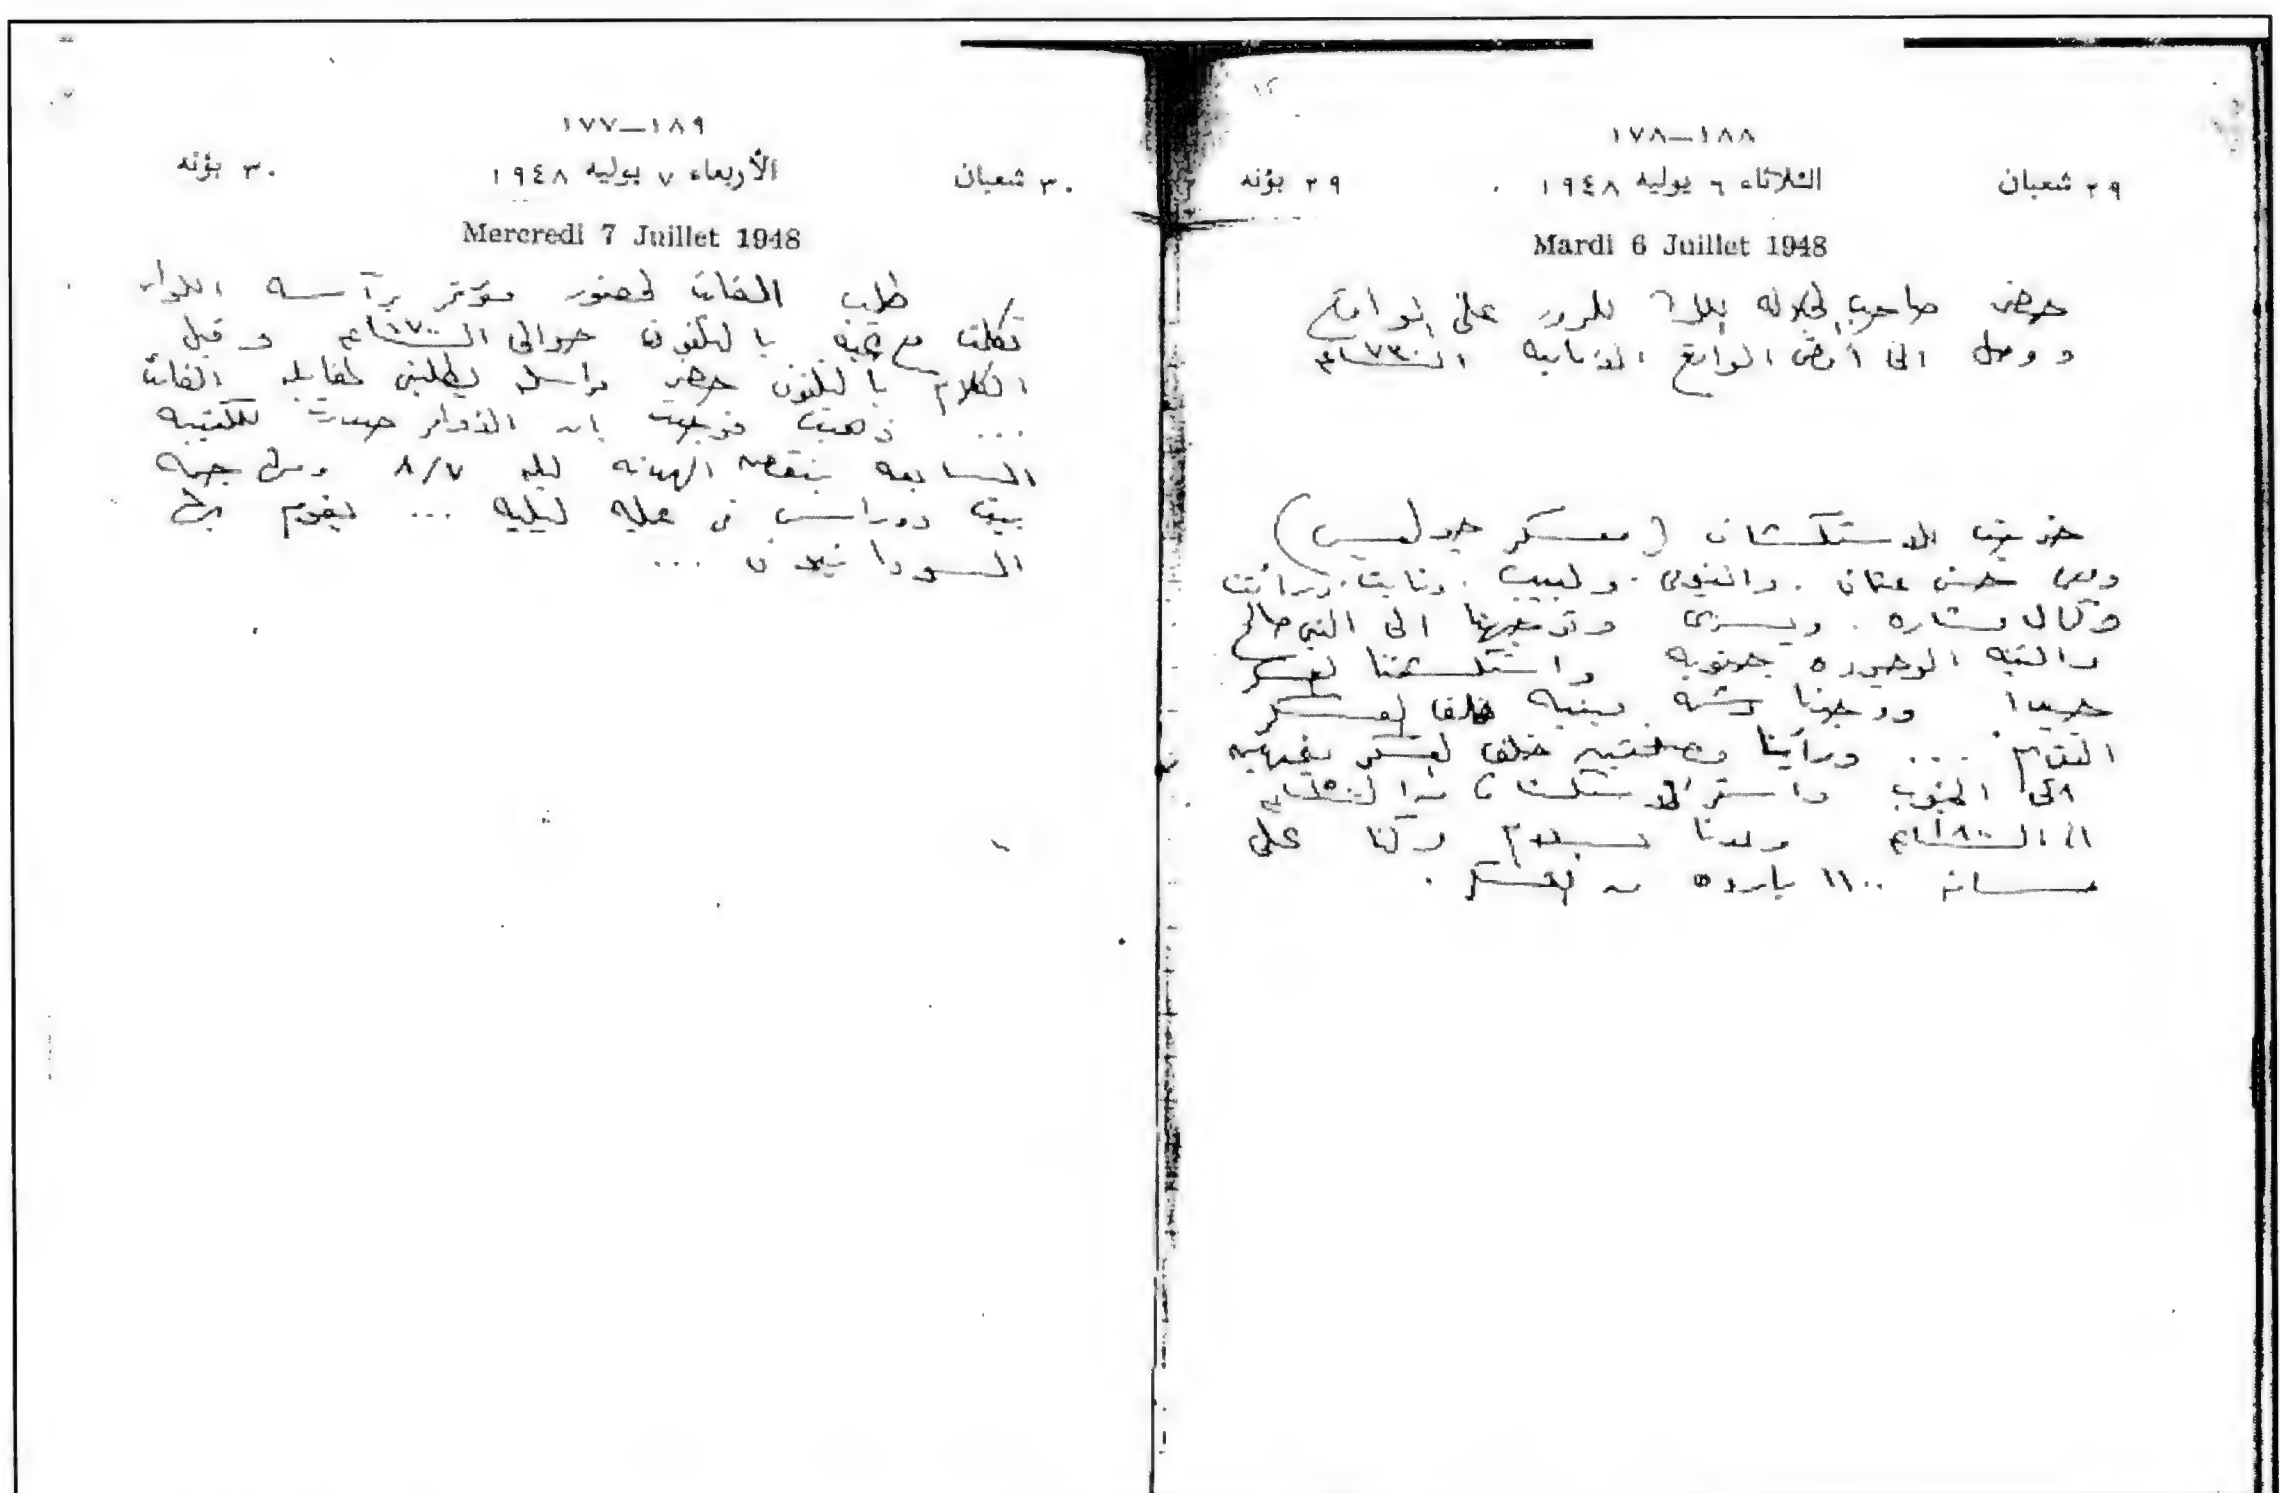 ١٨٨—١٧٨
٢٩ شعبان الثلاثاء ٦ يوليه ١٩٤٨ ٢٩ بؤنه
Mardi 6 Juillet 1948
حضر صاحب الجلاله للمرور على المواقع
ووصل الى أرض المواقع الدفاعيه الساعه ٧٣٠
خرجت للاستكشاف (معسكر جوليس)
ومعى حسن عثمان . ولبيب . وثابت . ورأفت
وكمال بشاره . ويسرى وتوجهنا الى النبى صالح
والتبه الوحيده جنوبه واستكشفنا المعسكر
جيدا ووجدنا خلف المعسكر
ورأينا خلف المعسكر
الى الجنوب واستمر الاستكشاف من الساعه
الى الساعه وعدنا بسلام وكنا على
مسافة ١١٠٠ يارده من المعسكر .
١٨٩—١٧٧
٣٠ شعبان الأربعاء ٧ يوليه ١٩٤٨ ٣٠ بؤنه
Mercredi 7 Juillet 1948
طلب القائد لحضور مؤتمر برآسه اللواء
تكلمت مع تحيه بالتلفون حوالى الساعه ١٧٠٠ وقبل
الكلام بالتلفون حضر مراسله يطلبنى لمقابله القائد
... ذهبت فوجدت ان الاوامر صدرت للكتيبه
السابعه بنقض الهدنه ليله ٨/٧ ومن جهه
بيت دوراس فى عمليه ليليه ... يقوم بها
السودانيون ...